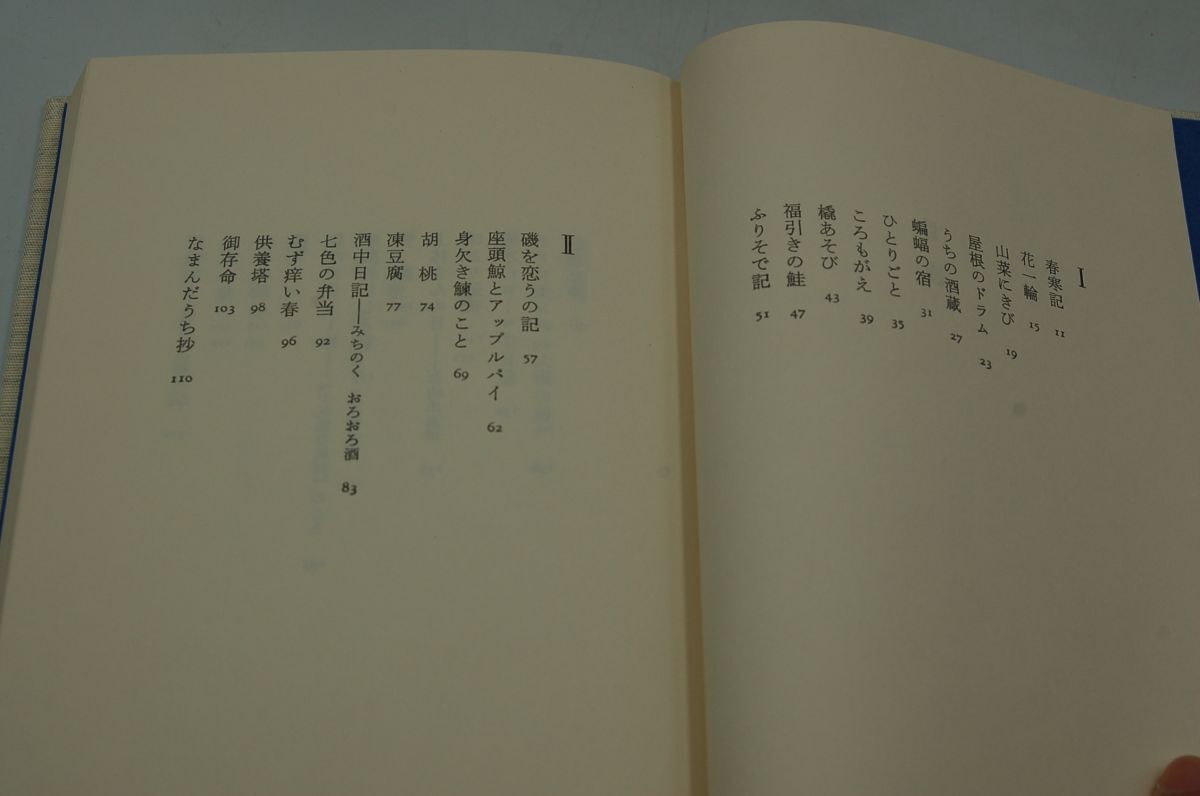 I
春寒記 11
花一輪 15
山菜にきび 19
屋根のドラム 23
うちの酒蔵 27
蝙蝠の宿 31
ひとりごと 35
ころもがえ 39
橇あそび 43
福引きの鮭 47
ふりそで記 51
II
磯を恋うの記 57
座頭鯨とアップルパイ 62
身欠き鰊のこと 69
胡桃 74
凍豆腐 77
酒中日記――みちのく おろおろ酒 83
七色の弁当 92
むず痒い春 96
供養塔 98
御存命 103
なまんだうち抄 110